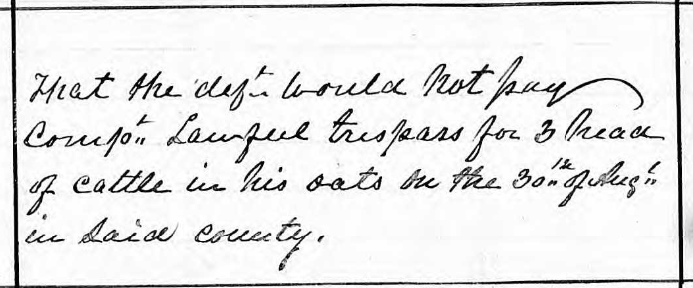 That the def't would not pay
Comp't Lawful trespass for 3 head
of cattle in his oats on the 30th of Aug't
in said county.